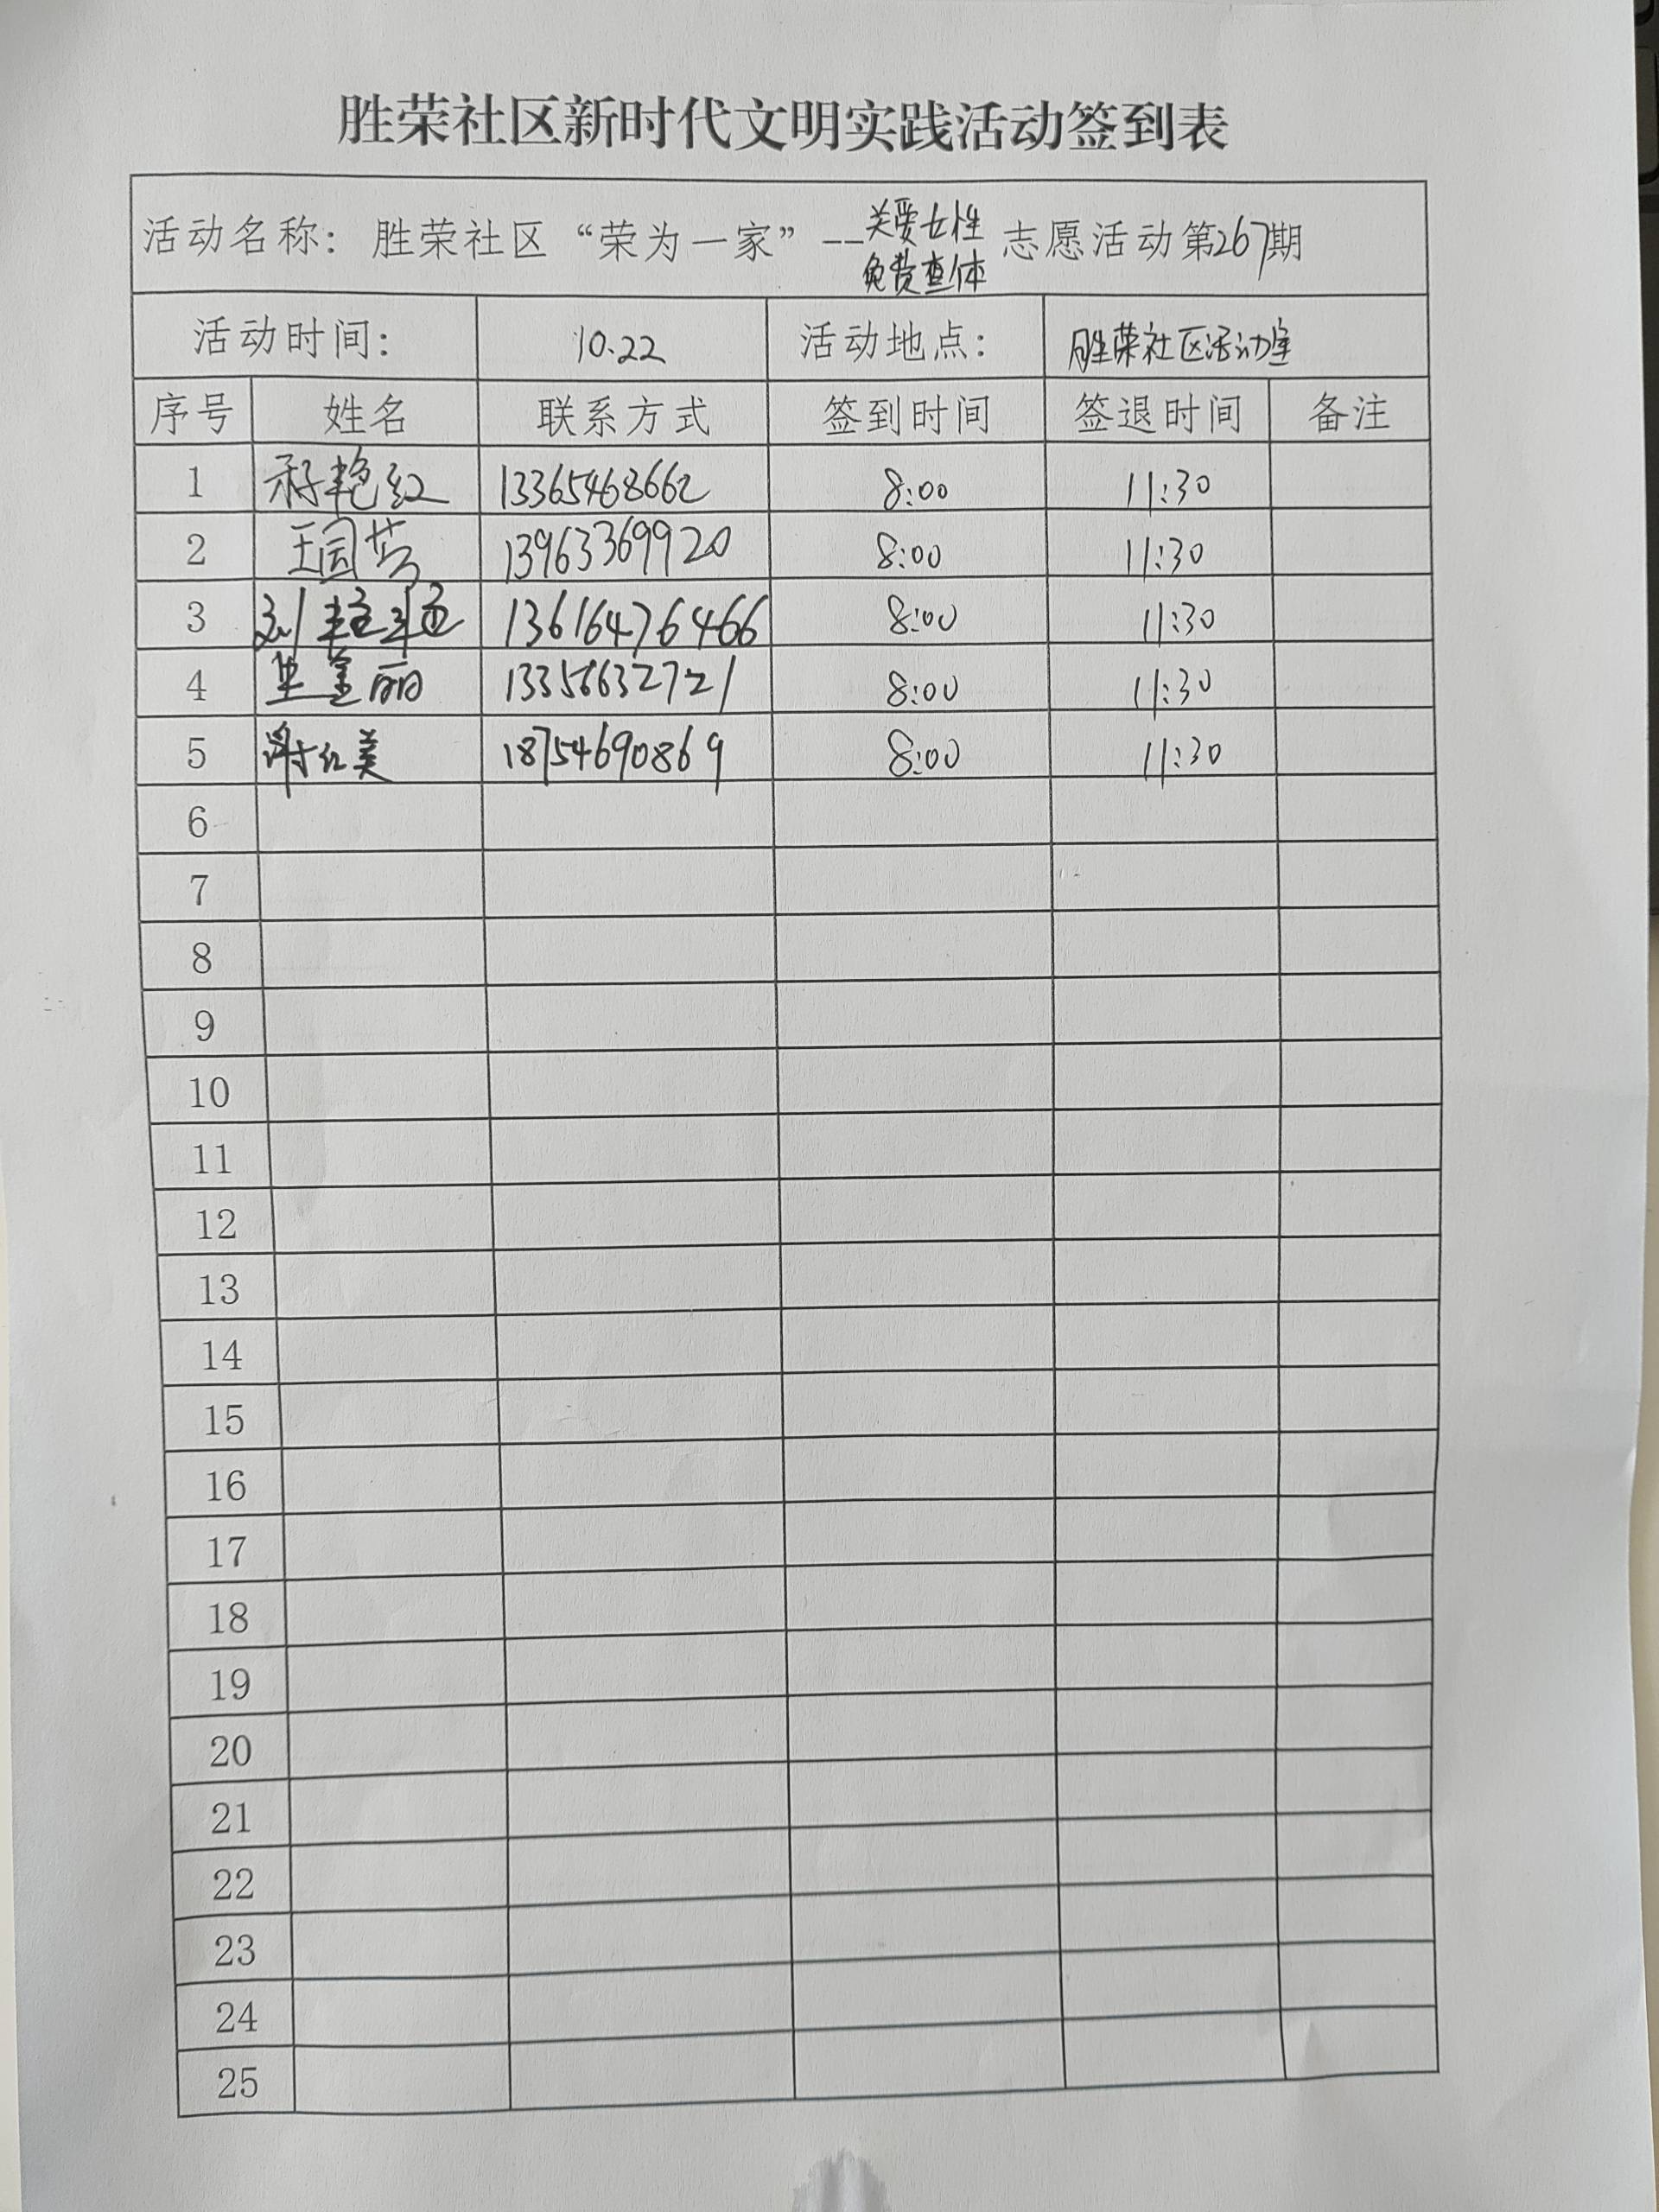 胜荣社区新时代文明实践活动签到表
活动名称：胜荣社区“荣为一家”--关爱女性免费查体志愿活动第267期
活动时间： 10.22 活动地点： 胜荣社区活动室
序号 姓名 联系方式 签到时间 签退时间 备注
1 艳红 13365468662 8:00 11:30
2 王园芳 13963369920 8:00 11:30
3 刘 13616476466 8:00 11:30
4 丽 13356632721 8:00 11:30
5 谢红美 18754690869 8:00 11:30
6
7
8
9
10
11
12
13
14
15
16
17
18
19
20
21
22
23
24
25